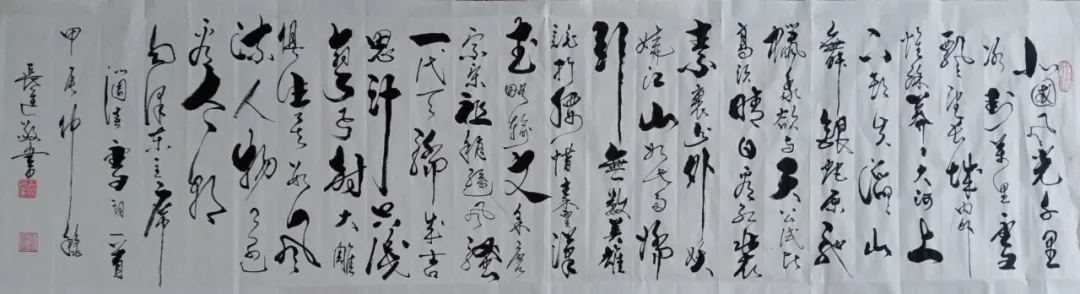 北國风光千里
冰封万里雪
飘望长城内外
惟余莽々大河上
下顿失滔々山
舞銀蛇原馳
蠟象欲与天公试比
高须晴日看红装
素裹分外妖
娆江山如此多娇
引無數英雄
竞折腰惜秦皇漢
武略输文采唐
宗宋祖稍逊风骚
一代天骄成吉
思汗只识
弯弓射大雕
俱往矣数风
流人物还
看今朝
毛泽东主席
沁園春雪词一首
甲辰仲秋
長敬書